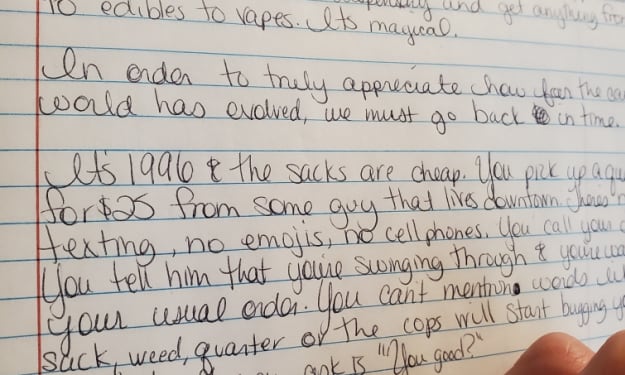 to edibles to vapes. Its magical.
and get anything from
In order to truly appreciate how far the
world has evolved, we must go back in time.
Its 1996 & the sacks are cheap. You pick up a
for $25 from some guy that lives downtown. Theres
texting, no emojis, no cellphones. You call your
You tell him that you're swinging through & you're
your usual order. You can't mention words
sack, weed, quarter or the cops will start bugging
is "You good?"